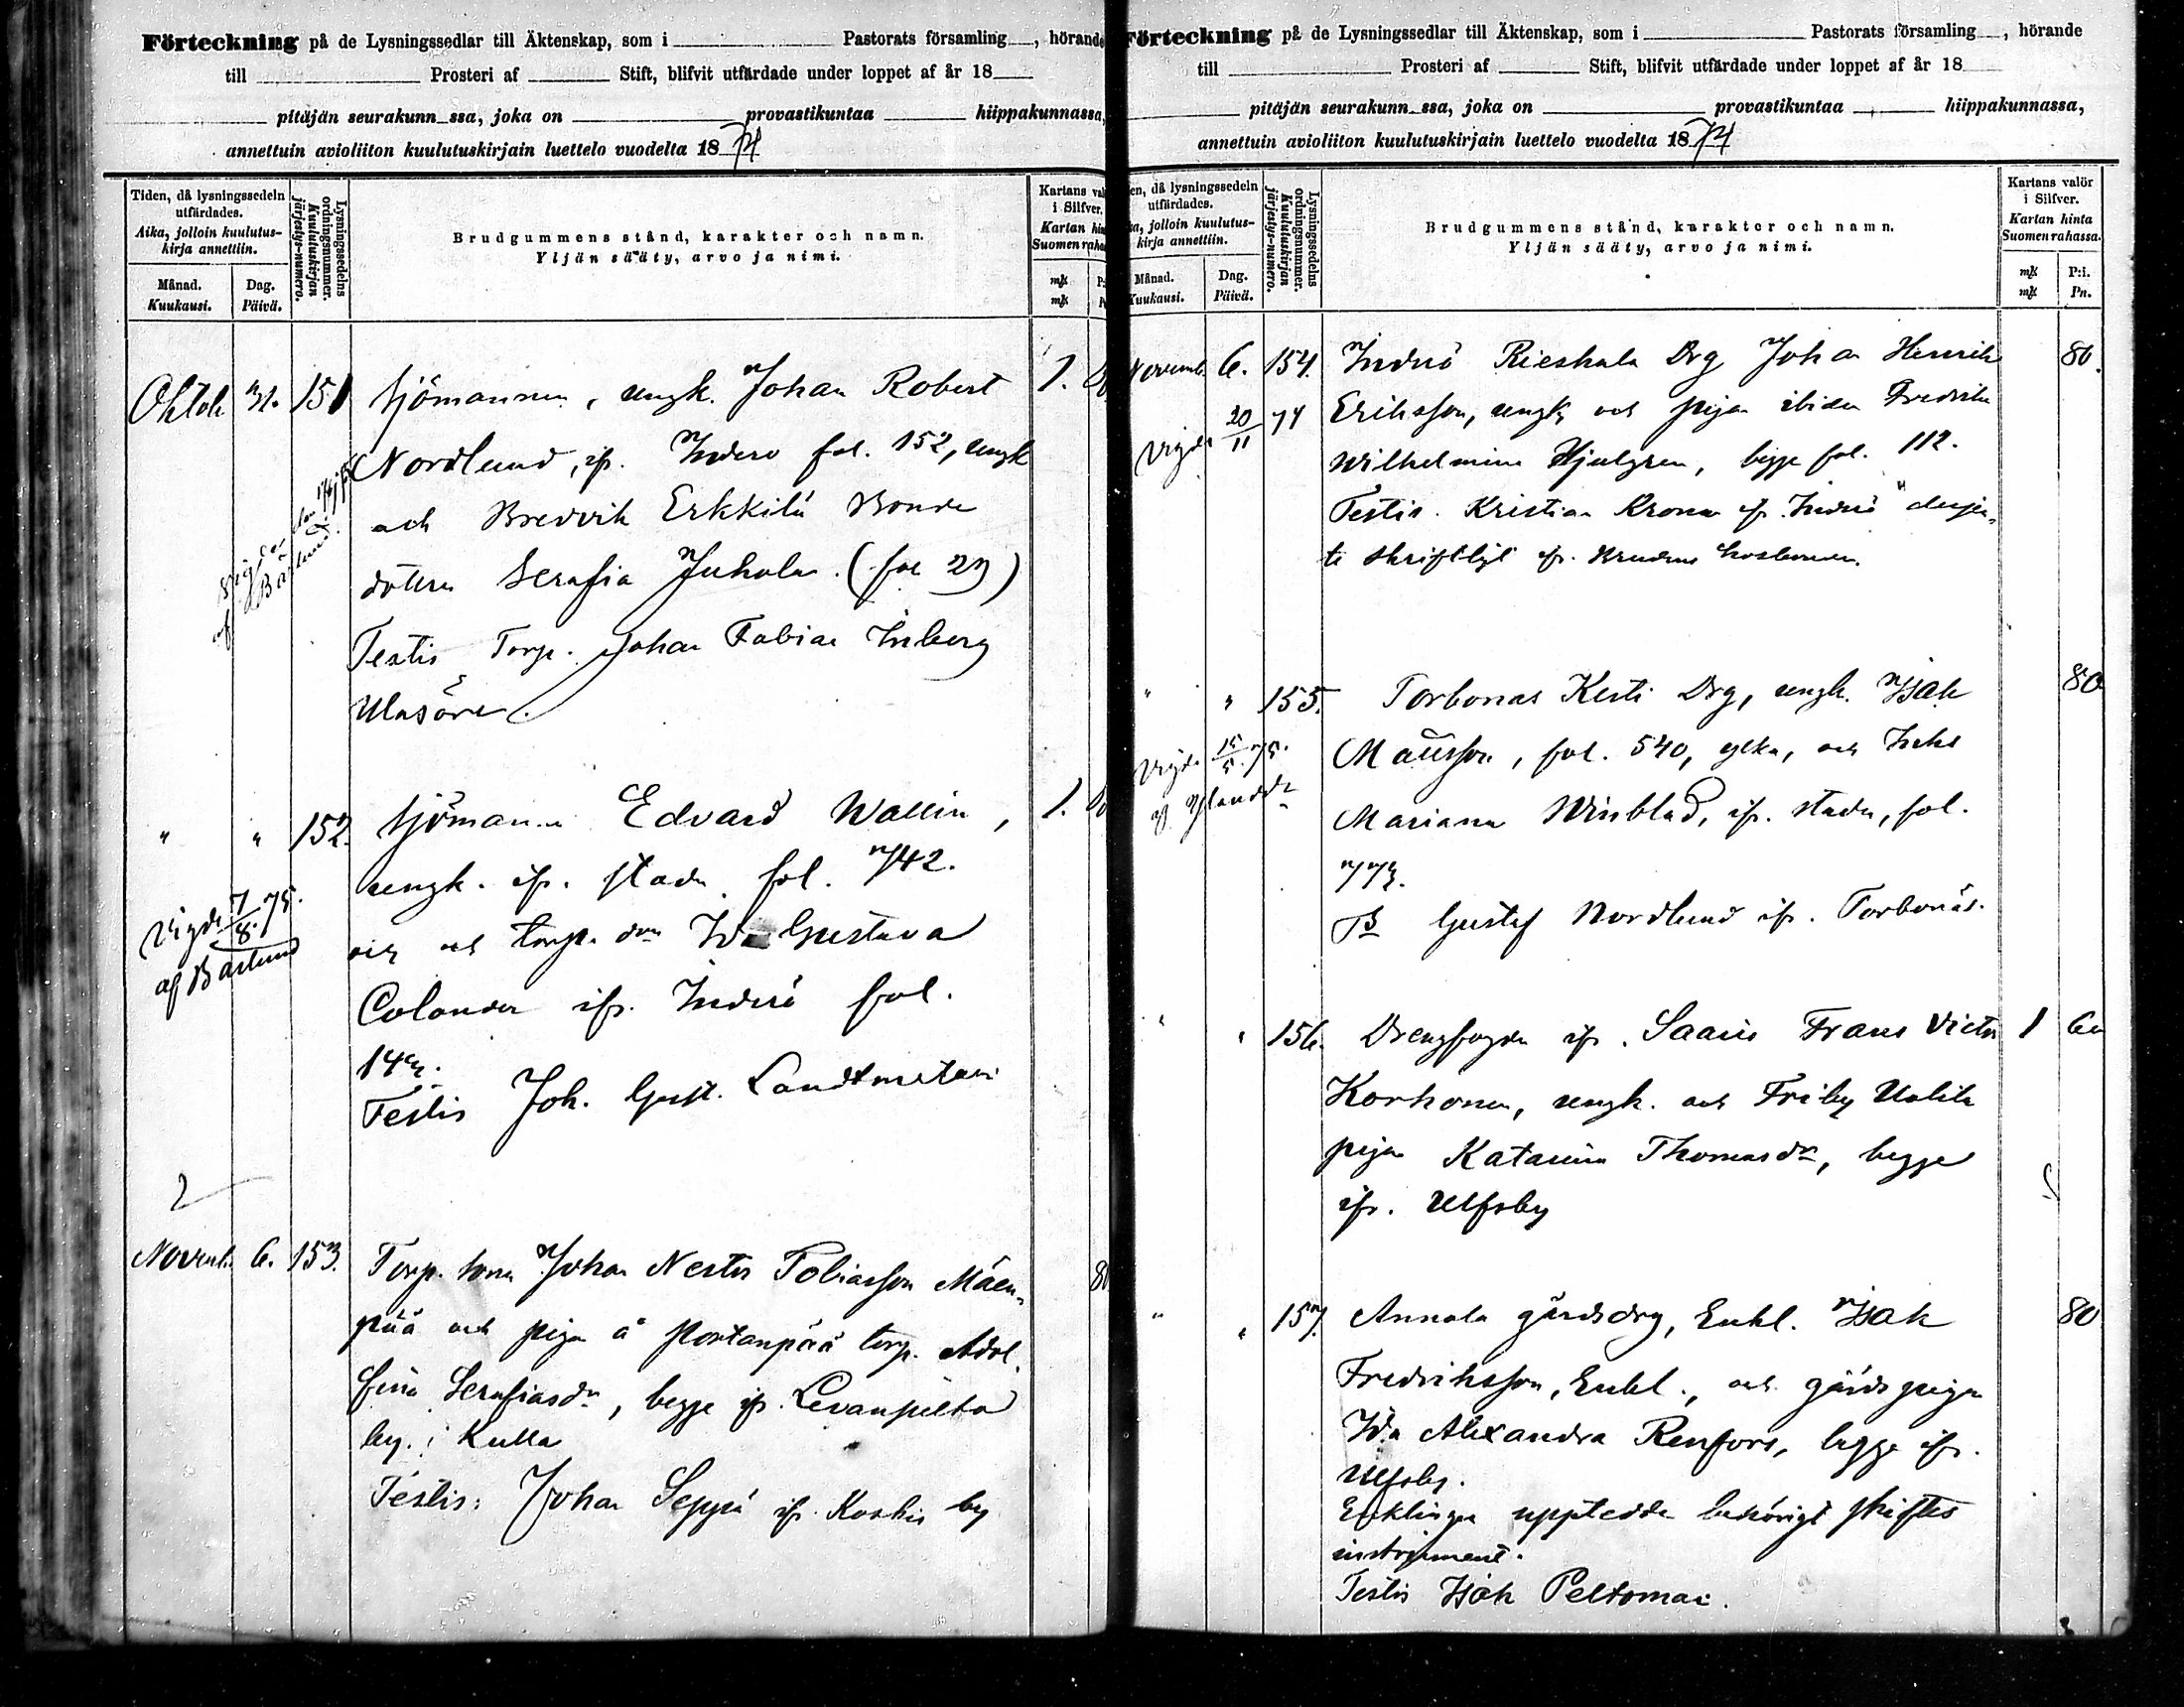 Förteckning på de Lysningssedlar till Äktenskap, som i Pastorats församling , hörande
till Prosteri af Stift, blifvit utfärdade under loppet af år 18
pitäjän seurakunn ssa, joka on provastikuntaa hiippakunnassa,
annettuin avioliiton kuulutuskirjain luettelo vuodelta 1874
Tiden, då lysningssedeln
utfärdades.
Aika, jolloin kuulutus-
kirja annettiin.
Månad.
Kuukausi.
Dag.
Päivä.
Lysningssedelns
ordningsnummer.
Kuulutuskirjan
järjestys-numero.
Brudgummens stånd, karakter och namn.
Yljän sääty, arvo ja nimi.
Kartans val
i Silfver.
Kartan hin
Suomen raha
mk
mk
Oktob 31. 151 Sjömannen, ungk. Johan Robert 1.
Nordlund, ifr. Inderö fol. 152, ungk
och Bredvik Erkkilä Bonde
dottern Serafia Juhola. (fol 29)
Testis Torp. Johan Fabian Inberg
Ulasöre.
Vigde
af Båstund.
" " 152. Sjöman Edvard Wallin, 1.
ungk. ifr. staden fol. 742.
och torp. dr Ida Gustava
Colander ifr. Inderö fol.
149.
Testis Joh. Gust. Landtmeteri
Vigde 7/8. 75.
af Båstund
Novemb. 6. 153. Torp. sonen Johan Nestor Tobiasson Mäen- 80
pää och pigan å Portanpää torp. Adol
fina Serafiasdr, begge ifr. Levanpelto
by. i Kulla
Testis: Johan Seppä ifr. Koskis by
Förteckning på de Lysningssedlar till Äktenskap, som i Pastorats församling , hörande
till Prosteri af Stift, blifvit utfärdade under loppet af år 18
pitäjän seurakunn ssa, joka on provastikuntaa hiippakunnassa,
annettuin avioliiton kuulutuskirjain luettelo vuodelta 1874
en, då lysningssedeln
utfärdades.
ka, jolloin kuulutus-
kirja annettiin.
Månad.
Kuukausi.
Dag.
Päivä.
Lysningssedelns
ordningsnummer.
Kuulutuskirjan
järjestys-numero.
Brudgummens stånd, karakter och namn.
Yljän sääty, arvo ja nimi.
Kartans valör
i Silfver.
Kartan hinta
Suomen rahassa.
mk P:i.
mk Pn.
Novemb. 6. 154. Inderö Rieskala Drg Johan Henrik 80.
Eriksson, ungk, och pigan ibidem Fredrika
Wilhelmina Hjulgren, begge fol. 112.
Testis. Kristian Krona ifr. Inderö
skriftligt ifr. Brudens
Vigde 20/11 74
" " 155. Torbonas Kesti Drg, ungk. Isak 80
Mattsson, fol. 540, och Inhs
Mariana Winblad, ifr. staden, fol.
773.
Ts Gustaf Nordlund ifr. Torbonäs.
Vigde 15/5. 75.
af Ylander
" " 156. Drengfogden ifr. Saaris Frans Victor 1 60
Korhonen, ungk. och Friby Uotila
pigan Katarina Thomasdr, begge
ifr. Ulfsby
" " 157. Annala gårdsdrg, Enkl. Isak 80
Fredriksson, Enkl., och gårdspigan
Ida Alexandra Renfors, begge ifr.
Ulfsby.
Enklingen uppteedde behörigt skiftes
instrument.
Testis Isak Peltomaa.